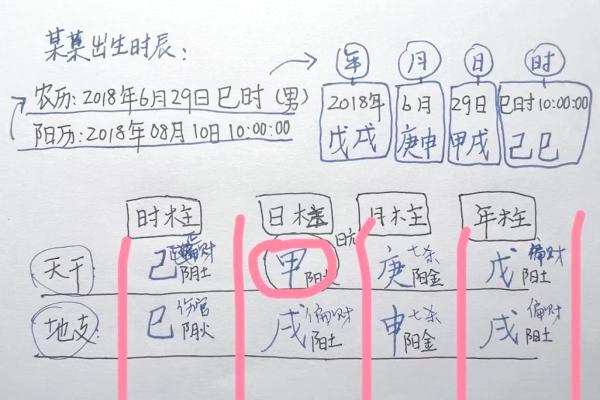 某某出生时辰:
农历:2018年6月29日巳时(男)
阳历:2018年08月10日10:00:00
年 月 日 时
2018年 6月 29日 巳时10:00:00
戊戌 庚申 甲戌 己巳
时柱 日柱 月柱 年柱
日元
天干 己 财 阴土 甲 阳 庚 七杀 阳金 戊 偏财 阳土
地支 巳 伤官 阴火 戌 偏财 阳土 申 七杀 阳金 戌 偏财 阳土